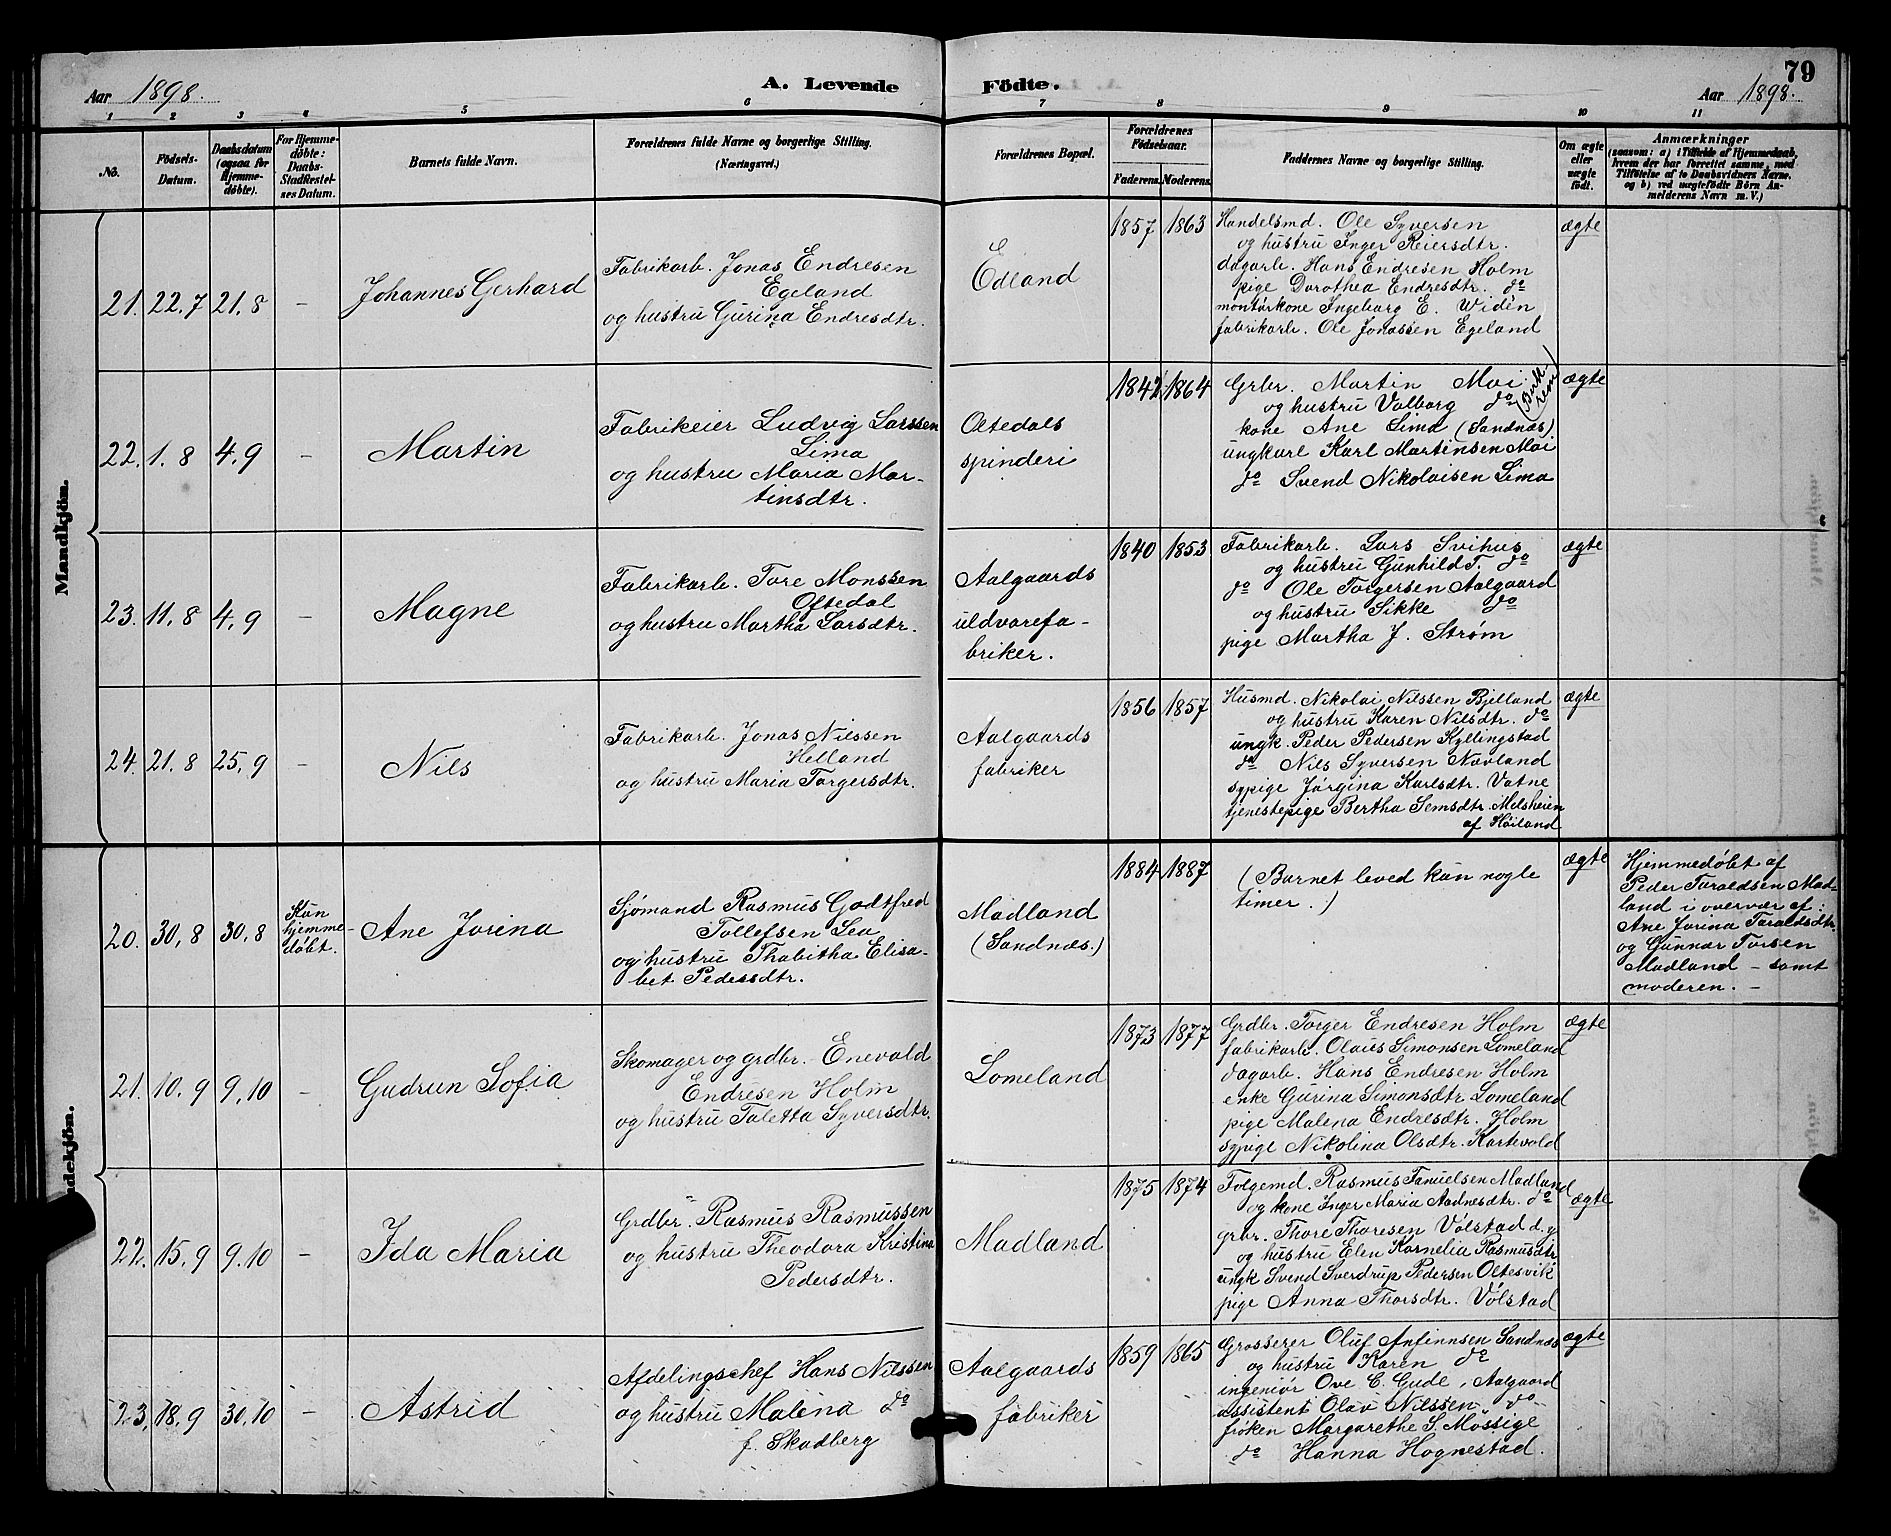 79
Aar 1898. A. Levende Födte. Aar 1898.
1 2 3 4 5 6 7 8 9 10 11
No.
Födsels-
Datum.
Daabsdatum
(ogsaa for
Hjemme-
döbte).
For Hjemme-
döbte:
Daabs-
Stadfæstel-
ses Datum.
Barnets fulde Navn.
Forældrenes fulde Navne og borgerlige Stilling.
(Næringsvei.)
Forældrenes Bopæl.
Forældrenes
Födselsaar.
Faderens. Moderens.
Faddernes Navne og borgerlige Stilling.
Om ægte
eller
uægte
födt.
Anmærkninger
(saasom: a) i Tilfælde af Hjemmedaab,
hvem der har forrettet samme, med
Tilföielse af to Daabsvidners Navne.
og b) ved uægtefödte Börn An-
melderens Navn m. V.)
Mandkjön.
21. 22,7 21,8 –
Johannes Gerhard
Fabrikarb. Jonas Endresen
Egeland
og hustru Gurina Endresdtr.
Edland
1857 1863
Handelsmd. Ole Syversen
og hustru Inger Reiersdtr.
dagarb. Hans Endresen Holm
pige Dorothea Endresdtr. do
montørkone Ingeborg E. Widén
fabrikarb. Ole Jonassen Egeland
ægte
22. 1,8 4,9 –
Martin
Fabrikeier Ludvig Larssen
Lima
og hustru Maria Mar-
tinsdtr.
Oltedals
spinderi
1842 1864
Grbr. Martin Moi
og hustru Valborg do
kone Ane Lima (Sandnæs)
ungkarl Karl Martinsen Moi
do Svend Nikolaisen Lima
ægte
23. 11,8 4,9 –
Magne
Fabrikarb. Tore Monssen
Oftedal
og hustru Martha Larsdtr.
Aalgaards
uldvarefa-
briker.
1840 1853
Fabrikarb. Lars Svihus
og hustru Gunhild T. do
do Ole Torgersen Aalgaard
og hustru Sikke do
pige Martha J. Strøm
ægte
24. 21,8 25,9 –
Nils
Fabrikarb. Jonas Nilssen
Helland
og hustru Maria Torgersdtr.
Aalgaards
fabriker
1856 1857
Husmd. Nikolai Nilssen Bjelland
og hustru Karen Nilsdtr. do
ungk. Peder Pedersen Kyllingstad
do Nils Syversen Navland
sypige Jørgina Karlsdtr. Vatne
tjenestepige Bertha Semsdtr. Melsheien
af Høiland
ægte
20. 30,8 30,8
Kun
hjemme-
døbt.
Ane Jorina
Sjømand Rasmus Godtfred
Tollefsen Lea
og hustru Thabitha Elisa-
bet Pedersdtr.
Madland
(Sandnæs.)
1884 1887
(Barnet leved kun nogle
timer.)
ægte
Hjemmedøbt af
Peder Taraldsen Mad-
land i overvær af:
Ane Jorina Taraldsdtr.
og Gunnar Torsen
Madland – samt
moderen. –
21. 10,9 9,10 –
Gudrun Sofia
Skomager og grdbr. Enevald
Endresen Holm
og hustru Taletta Syversdtr.
Lomeland
1873 1877
Grdbr. Torger Endresen Holm
fabrikarb. Olaus Simonsen Lomeland
dagarb. Hans Endresen Holm
enke Gurina Simonsdtr Lomeland
pige Malena Endresdtr. Holm
sypige Nikolina Olsdtr. Kartevold
ægte
22. 15,9 9,10 –
Ida Maria
Grdbr. Rasmus Rasmussen
og hustru Theodora Kristina
Pedersdtr.
Madland
1875 1874
Folgemd. Rasmus Tanielsen Madland
og kone Inger Maria Aadnesdtr. do
grbr. Thore Thoresen Vølstad d.y
og hustru Elen Kornelia Rasmusdtr
ungk Svend Sverdrup Pedersen Oltesvik
pige Anna Thorsdtr. Vølstad
ægte
23. 18,9 30,10 –
Astrid
Afdelingschef Hans Nilssen
og hustru Malena do
f. Skadberg
Aalgaards
fabriker
1859 1865
Grosserer Oluf Anfinnsen Sandnæs
og hustru Karen do
ingeniør Ove C. Gude, Aalgaard
assistent Olav Nilssen do
frøken Margarethe S. Møssige
do Hanna Hognestad.
ægte